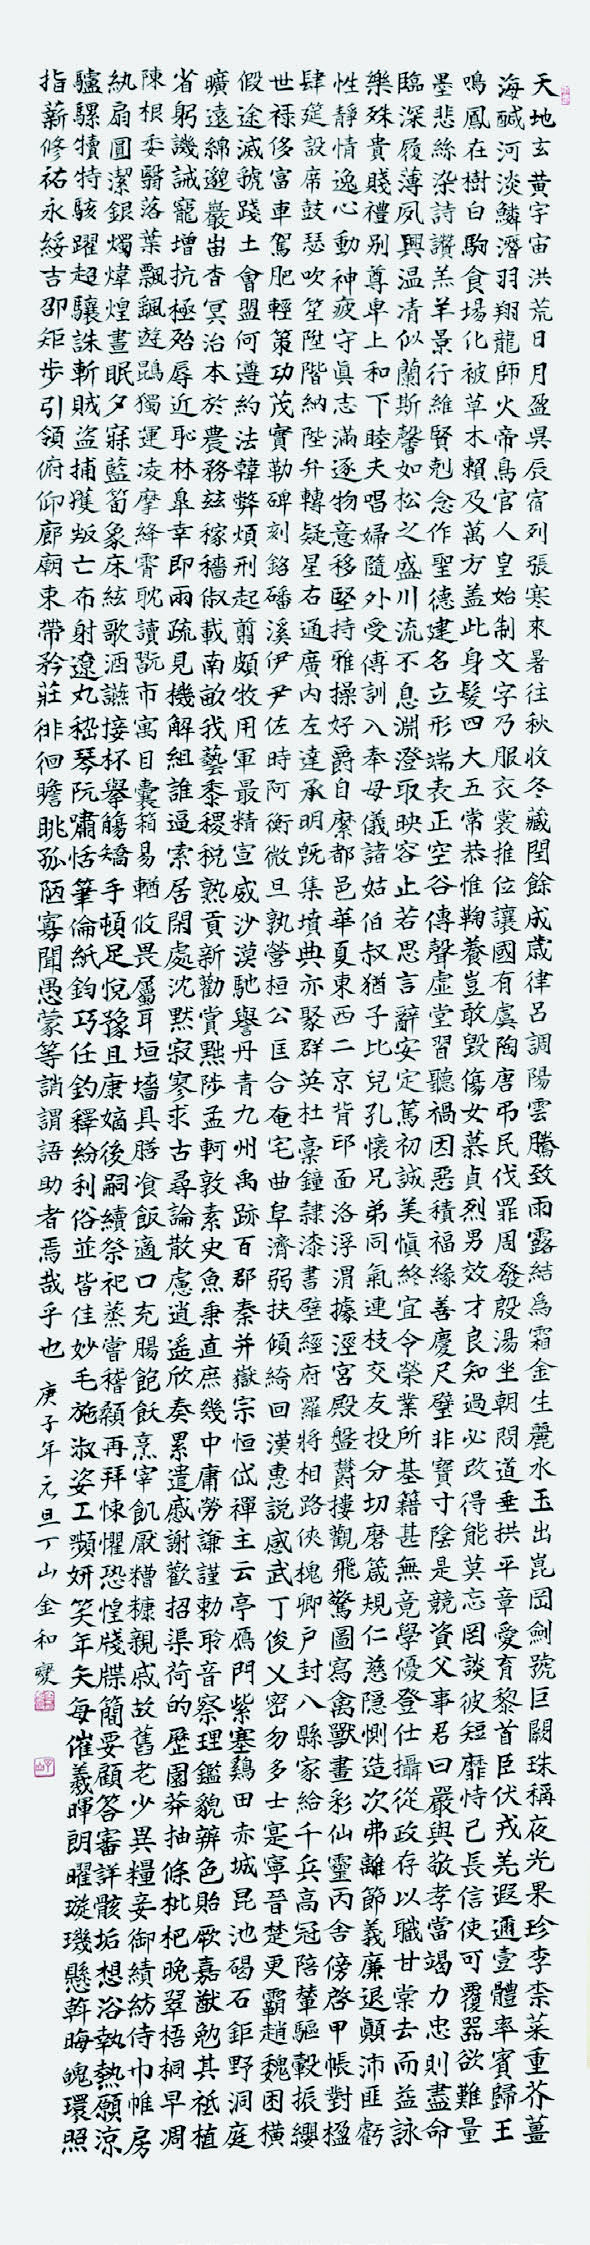 天地玄黃宇宙洪荒日月盈昃辰宿列張寒來暑往秋收冬藏閏餘成歲律呂調陽雲騰致雨露結爲霜金生麗水玉出崑岡劍號巨闕珠稱夜光果珍李柰菜重芥薑
海鹹河淡鱗潛羽翔龍師火帝鳥官人皇始制文字乃服衣裳推位讓國有虞陶唐弔民伐罪周發殷湯坐朝問道垂拱平章愛育黎首臣伏戎羌遐邇壹體率賓歸王
鳴鳳在樹白駒食場化被草木賴及萬方蓋此身髮四大五常恭惟鞠養豈敢毀傷女慕貞烈男效才良知過必改得能莫忘罔談彼短靡恃己長信使可覆器欲難量
墨悲絲染詩讚羔羊景行維賢剋念作聖德建名立形端表正空谷傳聲虛堂習聽禍因惡積福緣善慶尺璧非寶寸陰是競資父事君曰嚴與敬孝當竭力忠則盡命
臨深履薄夙興溫凊似蘭斯馨如松之盛川流不息淵澄取映容止若思言辭安定篤初誠美愼終宜令榮業所基籍甚無竟學優登仕攝從政存以職甘棠去而益詠
樂殊貴賤禮別尊卑上和下睦夫唱婦隨外受傅訓入奉母儀諸姑伯叔猶子比兒孔懷兄弟同氣連枝交友投分切磨箴規仁慈隱惻造次弗離節義廉退顚沛匪虧
性靜情逸心動神疲守眞志滿逐物意移堅持雅操好爵自縻都邑華夏東西二京背邙面洛浮渭據涇宮殿盤鬱樓觀飛驚圖寫禽獸畫彩仙靈丙舍傍啓甲帳對楹
肆筵設席鼓瑟吹笙陞階納陛弁轉疑星右通廣內左達承明旣集墳典亦聚群英杜稾鐘隸漆書壁經府羅將相路俠槐卿戶封八縣家給千兵高冠陪輦驅轂振纓
世祿侈富車駕肥輕策功茂實勒碑刻銘磻溪伊尹佐時阿衡微旦孰營桓公匡合奄宅曲阜濟弱扶傾綺回漢惠說感武丁俊乂密勿多士寔寧晉楚更霸趙魏困橫
假途滅虢踐土會盟何遵約法韓弊煩刑起翦頗牧用軍最精宣威沙漠馳譽丹青九州禹跡百郡秦并嶽宗恒岱禪主云亭鴈門紫塞鷄田赤城昆池碣石鉅野洞庭
曠遠綿邈巖岫杳冥治本於農務玆稼穡俶載南畝我藝黍稷稅熟貢新勸賞黜陟孟軻敦素史魚秉直庶幾中庸勞謙謹勅聆音察理鑑貌辨色貽厥嘉猷勉其祗植
省躬譏誡寵增抗極殆辱近恥林皐幸卽兩疏見機解組誰逼索居閑處沈默寂寥求古尋論散慮逍遙欣奏累遣慼謝歡招渠荷的歷園莽抽條枇杷晩翠梧桐早凋
陳根委翳落葉飄颻遊鵾獨運凌摩絳霄耽讀翫市寓目囊箱易輶攸畏屬耳垣墻具膳飡飯適口充腸飽飫烹宰飢厭糟糠親戚故舊老少異糧妾御績紡侍巾帷房
紈扇圓潔銀燭煒煌晝眠夕寐藍筍象床絃歌酒讌接杯擧觴矯手頓足悅豫且康嫡後嗣續祭祀蒸嘗稽顙再拜悚懼恐惶牋牒簡要顧答審詳骸垢想浴執熱願涼
驢騾犢特駭躍超驤誅斬賊盜捕獲叛亡布射遼丸嵇琴阮嘯恬筆倫紙鈞巧任釣釋紛利俗並皆佳妙毛施淑姿工顰姸笑年矢每催羲暉朗曜璇璣懸斡晦魄環照
指薪修祐永綏吉邵矩步引領俯仰廊廟束帶矜莊徘徊瞻眺孤陋寡聞愚蒙等誚謂語助者焉哉乎也 庚子年元旦丁山金和燮